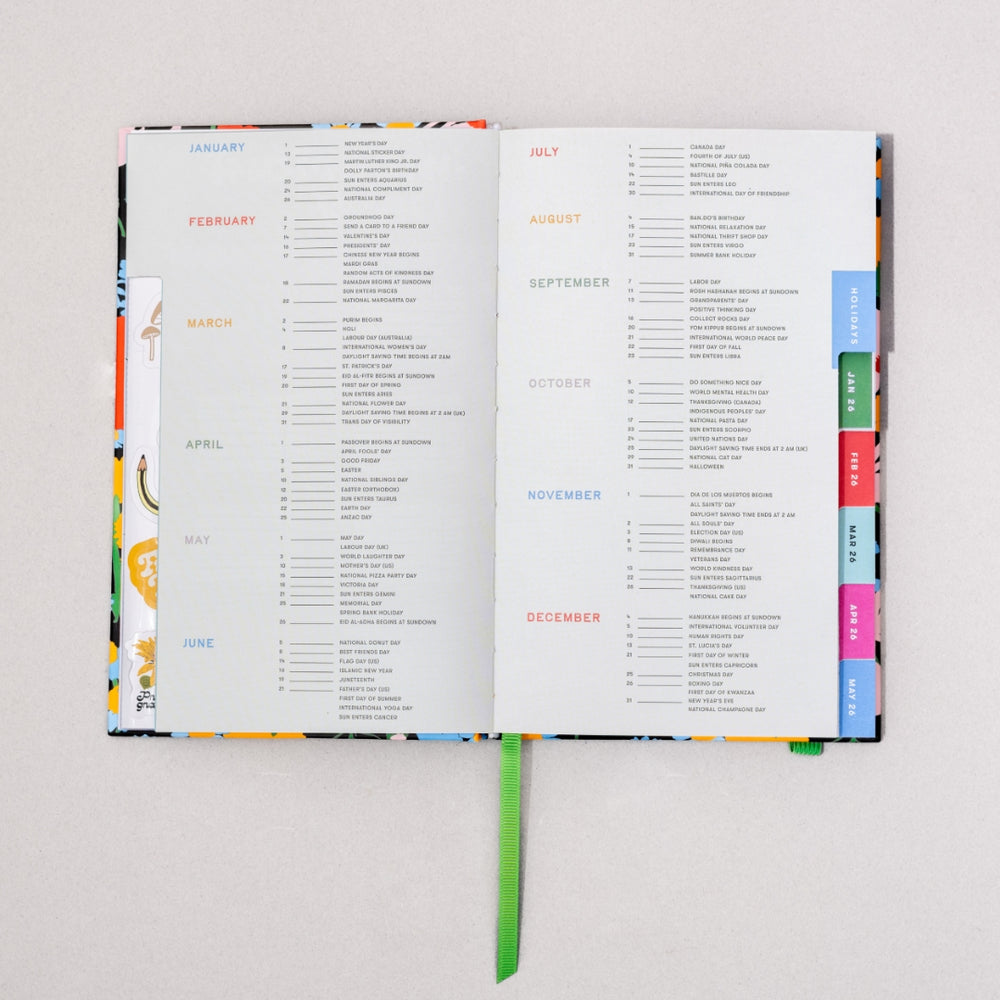 JANUARY
1 NEW YEAR'S DAY
13 NATIONAL STICKER DAY
19 MARTIN LUTHER KING JR. DAY
DOLLY PARTON'S BIRTHDAY
20 SUN ENTERS AQUARIUS
24 NATIONAL COMPLIMENT DAY
26 AUSTRALIA DAY
FEBRUARY
2 GROUNDHOG DAY
7 SEND A CARD TO A FRIEND DAY
14 VALENTINE'S DAY
16 PRESIDENTS' DAY
17 CHINESE NEW YEAR BEGINS
MARDI GRAS
RANDOM ACTS OF KINDNESS DAY
18 RAMADAN BEGINS AT SUNDOWN
SUN ENTERS PISCES
22 NATIONAL MARGARITA DAY
MARCH
2 PURIM BEGINS
4 HOLI
LABOUR DAY (AUSTRALIA)
8 INTERNATIONAL WOMEN'S DAY
DAYLIGHT SAVING TIME BEGINS AT 2AM
17 ST. PATRICK'S DAY
19 EID AL-FITR BEGINS AT SUNDOWN
20 FIRST DAY OF SPRING
SUN ENTERS ARIES
21 NATIONAL FLOWER DAY
29 DAYLIGHT SAVING TIME BEGINS AT 2 AM (UK)
31 TRANS DAY OF VISIBILITY
APRIL
1 PASSOVER BEGINS AT SUNDOWN
APRIL FOOLS' DAY
3 GOOD FRIDAY
5 EASTER
10 NATIONAL SIBLINGS DAY
12 EASTER (ORTHODOX)
20 SUN ENTERS TAURUS
22 EARTH DAY
25 ANZAC DAY
MAY
1 MAY DAY
LABOUR DAY (UK)
3 WORLD LAUGHTER DAY
10 MOTHER'S DAY (US)
15 NATIONAL PIZZA PARTY DAY
18 VICTORIA DAY
21 SUN ENTERS GEMINI
25 MEMORIAL DAY
SPRING BANK HOLIDAY
26 EID AL-ADHA BEGINS AT SUNDOWN
JUNE
5 NATIONAL DONUT DAY
8 BEST FRIENDS DAY
14 FLAG DAY (US)
16 ISLAMIC NEW YEAR
19 JUNETEENTH
21 FATHER'S DAY (US)
FIRST DAY OF SUMMER
INTERNATIONAL YOGA DAY
SUN ENTERS CANCER
JULY
1 CANADA DAY
4 FOURTH OF JULY (US)
10 NATIONAL PIÑA COLADA DAY
14 BASTILLE DAY
22 SUN ENTERS LEO
30 INTERNATIONAL DAY OF FRIENDSHIP
AUGUST
4 BAN.DO'S BIRTHDAY
15 NATIONAL RELAXATION DAY
17 NATIONAL THRIFT SHOP DAY
23 SUN ENTERS VIRGO
31 SUMMER BANK HOLIDAY
SEPTEMBER
7 LABOR DAY
11 ROSH HASHANAH BEGINS AT SUNDOWN
13 GRANDPARENTS' DAY
POSITIVE THINKING DAY
16 COLLECT ROCKS DAY
20 YOM KIPPUR BEGINS AT SUNDOWN
21 INTERNATIONAL WORLD PEACE DAY
22 FIRST DAY OF FALL
23 SUN ENTERS LIBRA
OCTOBER
5 DO SOMETHING NICE DAY
10 WORLD MENTAL HEALTH DAY
12 THANKSGIVING (CANADA)
INDIGENOUS PEOPLES' DAY
17 NATIONAL PASTA DAY
23 SUN ENTERS SCORPIO
24 UNITED NATIONS DAY
25 DAYLIGHT SAVING TIME ENDS AT 2 AM (UK)
29 NATIONAL CAT DAY
31 HALLOWEEN
NOVEMBER
1 DIA DE LOS MUERTOS BEGINS
ALL SAINTS' DAY
DAYLIGHT SAVING TIME ENDS AT 2 AM
2 ALL SOULS' DAY
3 ELECTION DAY (US)
8 DIWALI BEGINS
11 REMEMBRANCE DAY
VETERANS DAY
13 WORLD KINDNESS DAY
22 SUN ENTERS SAGITTARIUS
26 THANKSGIVING (US)
NATIONAL CAKE DAY
DECEMBER
4 HANUKKAH BEGINS AT SUNDOWN
5 INTERNATIONAL VOLUNTEER DAY
10 HUMAN RIGHTS DAY
13 ST. LUCIA'S DAY
21 FIRST DAY OF WINTER
SUN ENTERS CAPRICORN
25 CHRISTMAS DAY
26 BOXING DAY
FIRST DAY OF KWANZAA
31 NEW YEAR'S EVE
NATIONAL CHAMPAGNE DAY
HOLIDAYS
JAN 26
FEB 26
MAR 26
APR 26
MAY 26